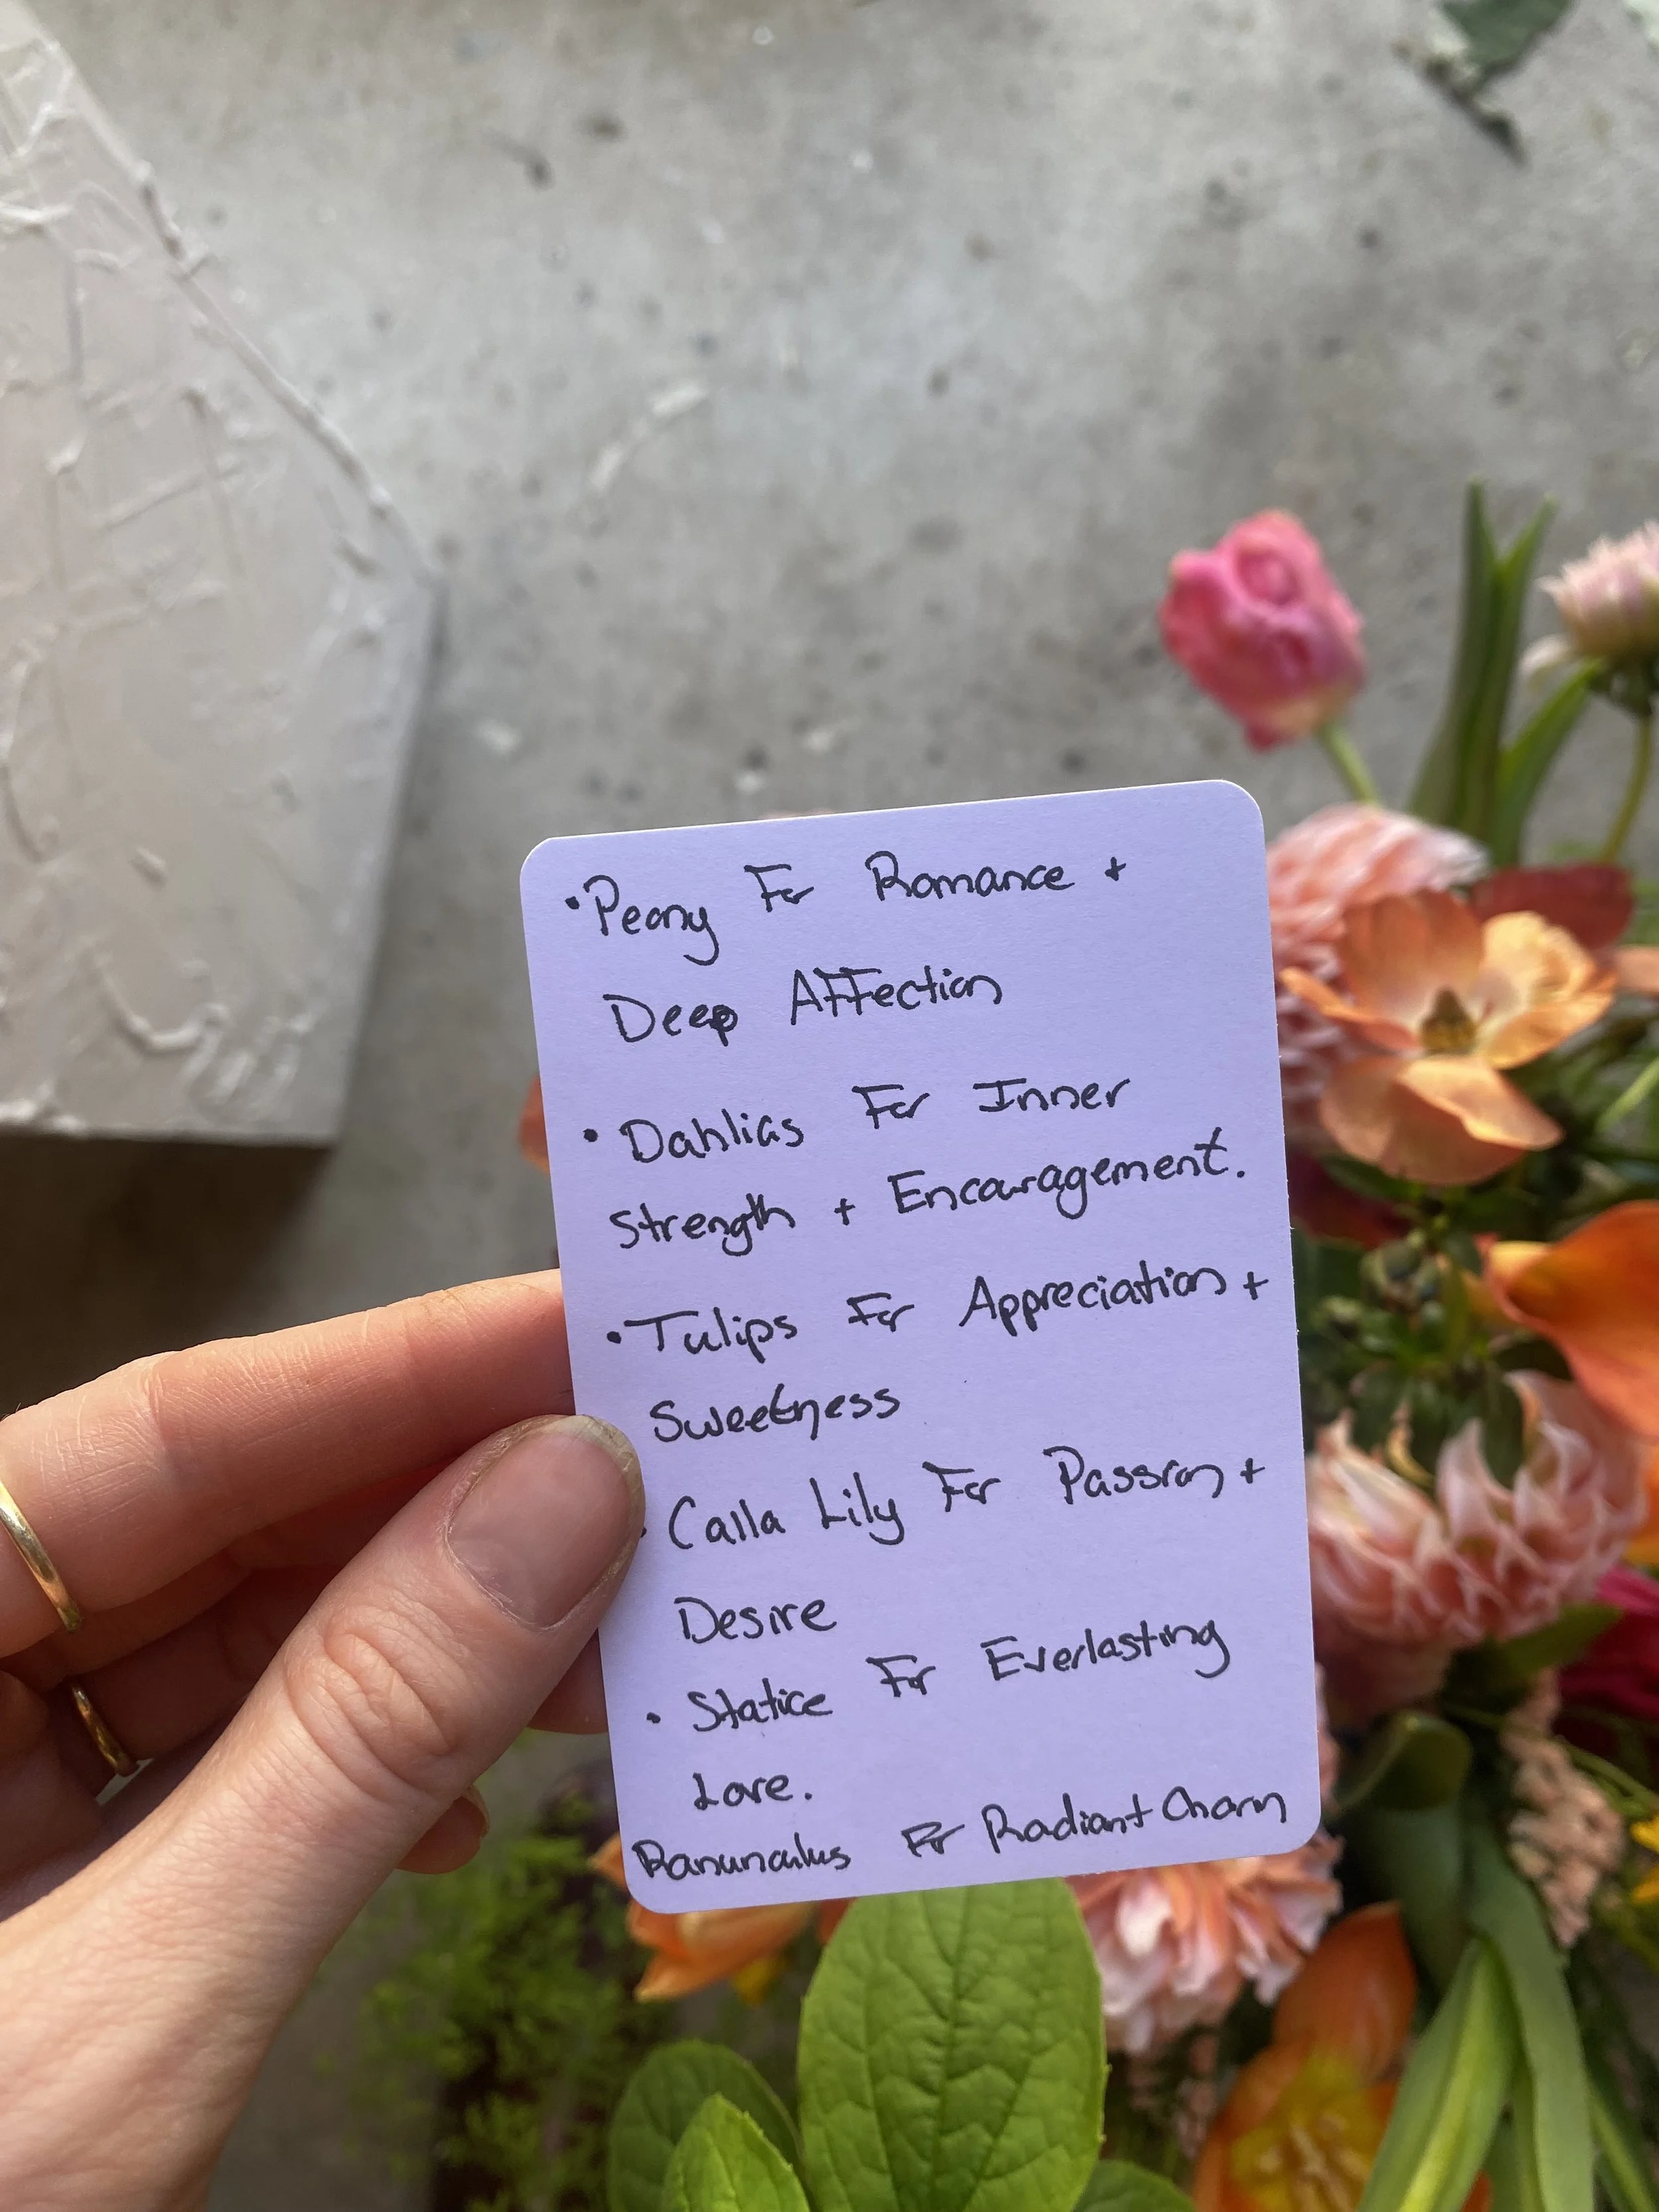 • Peony For Romance +
Deep Affection
• Dahlias For Inner
Strength + Encouragement.
• Tulips For Appreciation +
Sweetness
• Calla Lily For Passion +
Desire
• Statice For Everlasting
Love.
Ranunculus For Radiant Charm